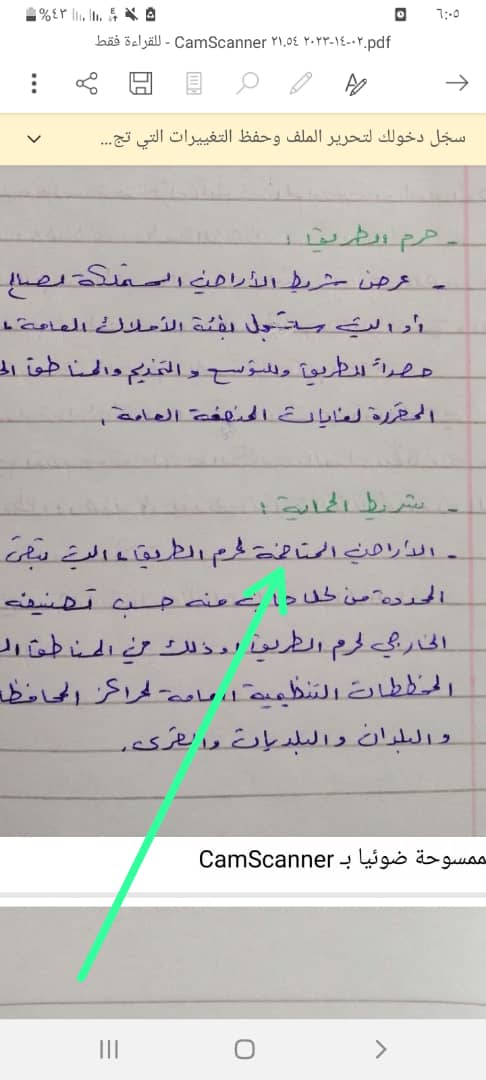 ٦:٠٥
%٤٣
CamScanner ٢١,٥٤ ٢٠٢٣-١٤-٠٢.pdf - للقراءة فقط
سجّل دخولك لتحرير الملف وحفظ التغييرات التي تج...
- حرم الطريق :
- عرض شريط الأراضي المستملكة لصالح
أو التي ستسجل بفئة الأملاك العامة
للطريق وللتوسع و التخديم والمناطق
المقررة لغايات المنفعة العامة .
- شريط الحماية :
- الأراضي المتاخمة لحرم الطريق والتي تبقى
المحددة من كلا منه حسب تصنيفه
الخارجي لحرم الطريق وذلك في المناطق
المخططات التنظيمية العامة لمراكز المحافظا
و البلدان و البلديات والقرى .
ممسوحة ضوئيا بـ CamScanner